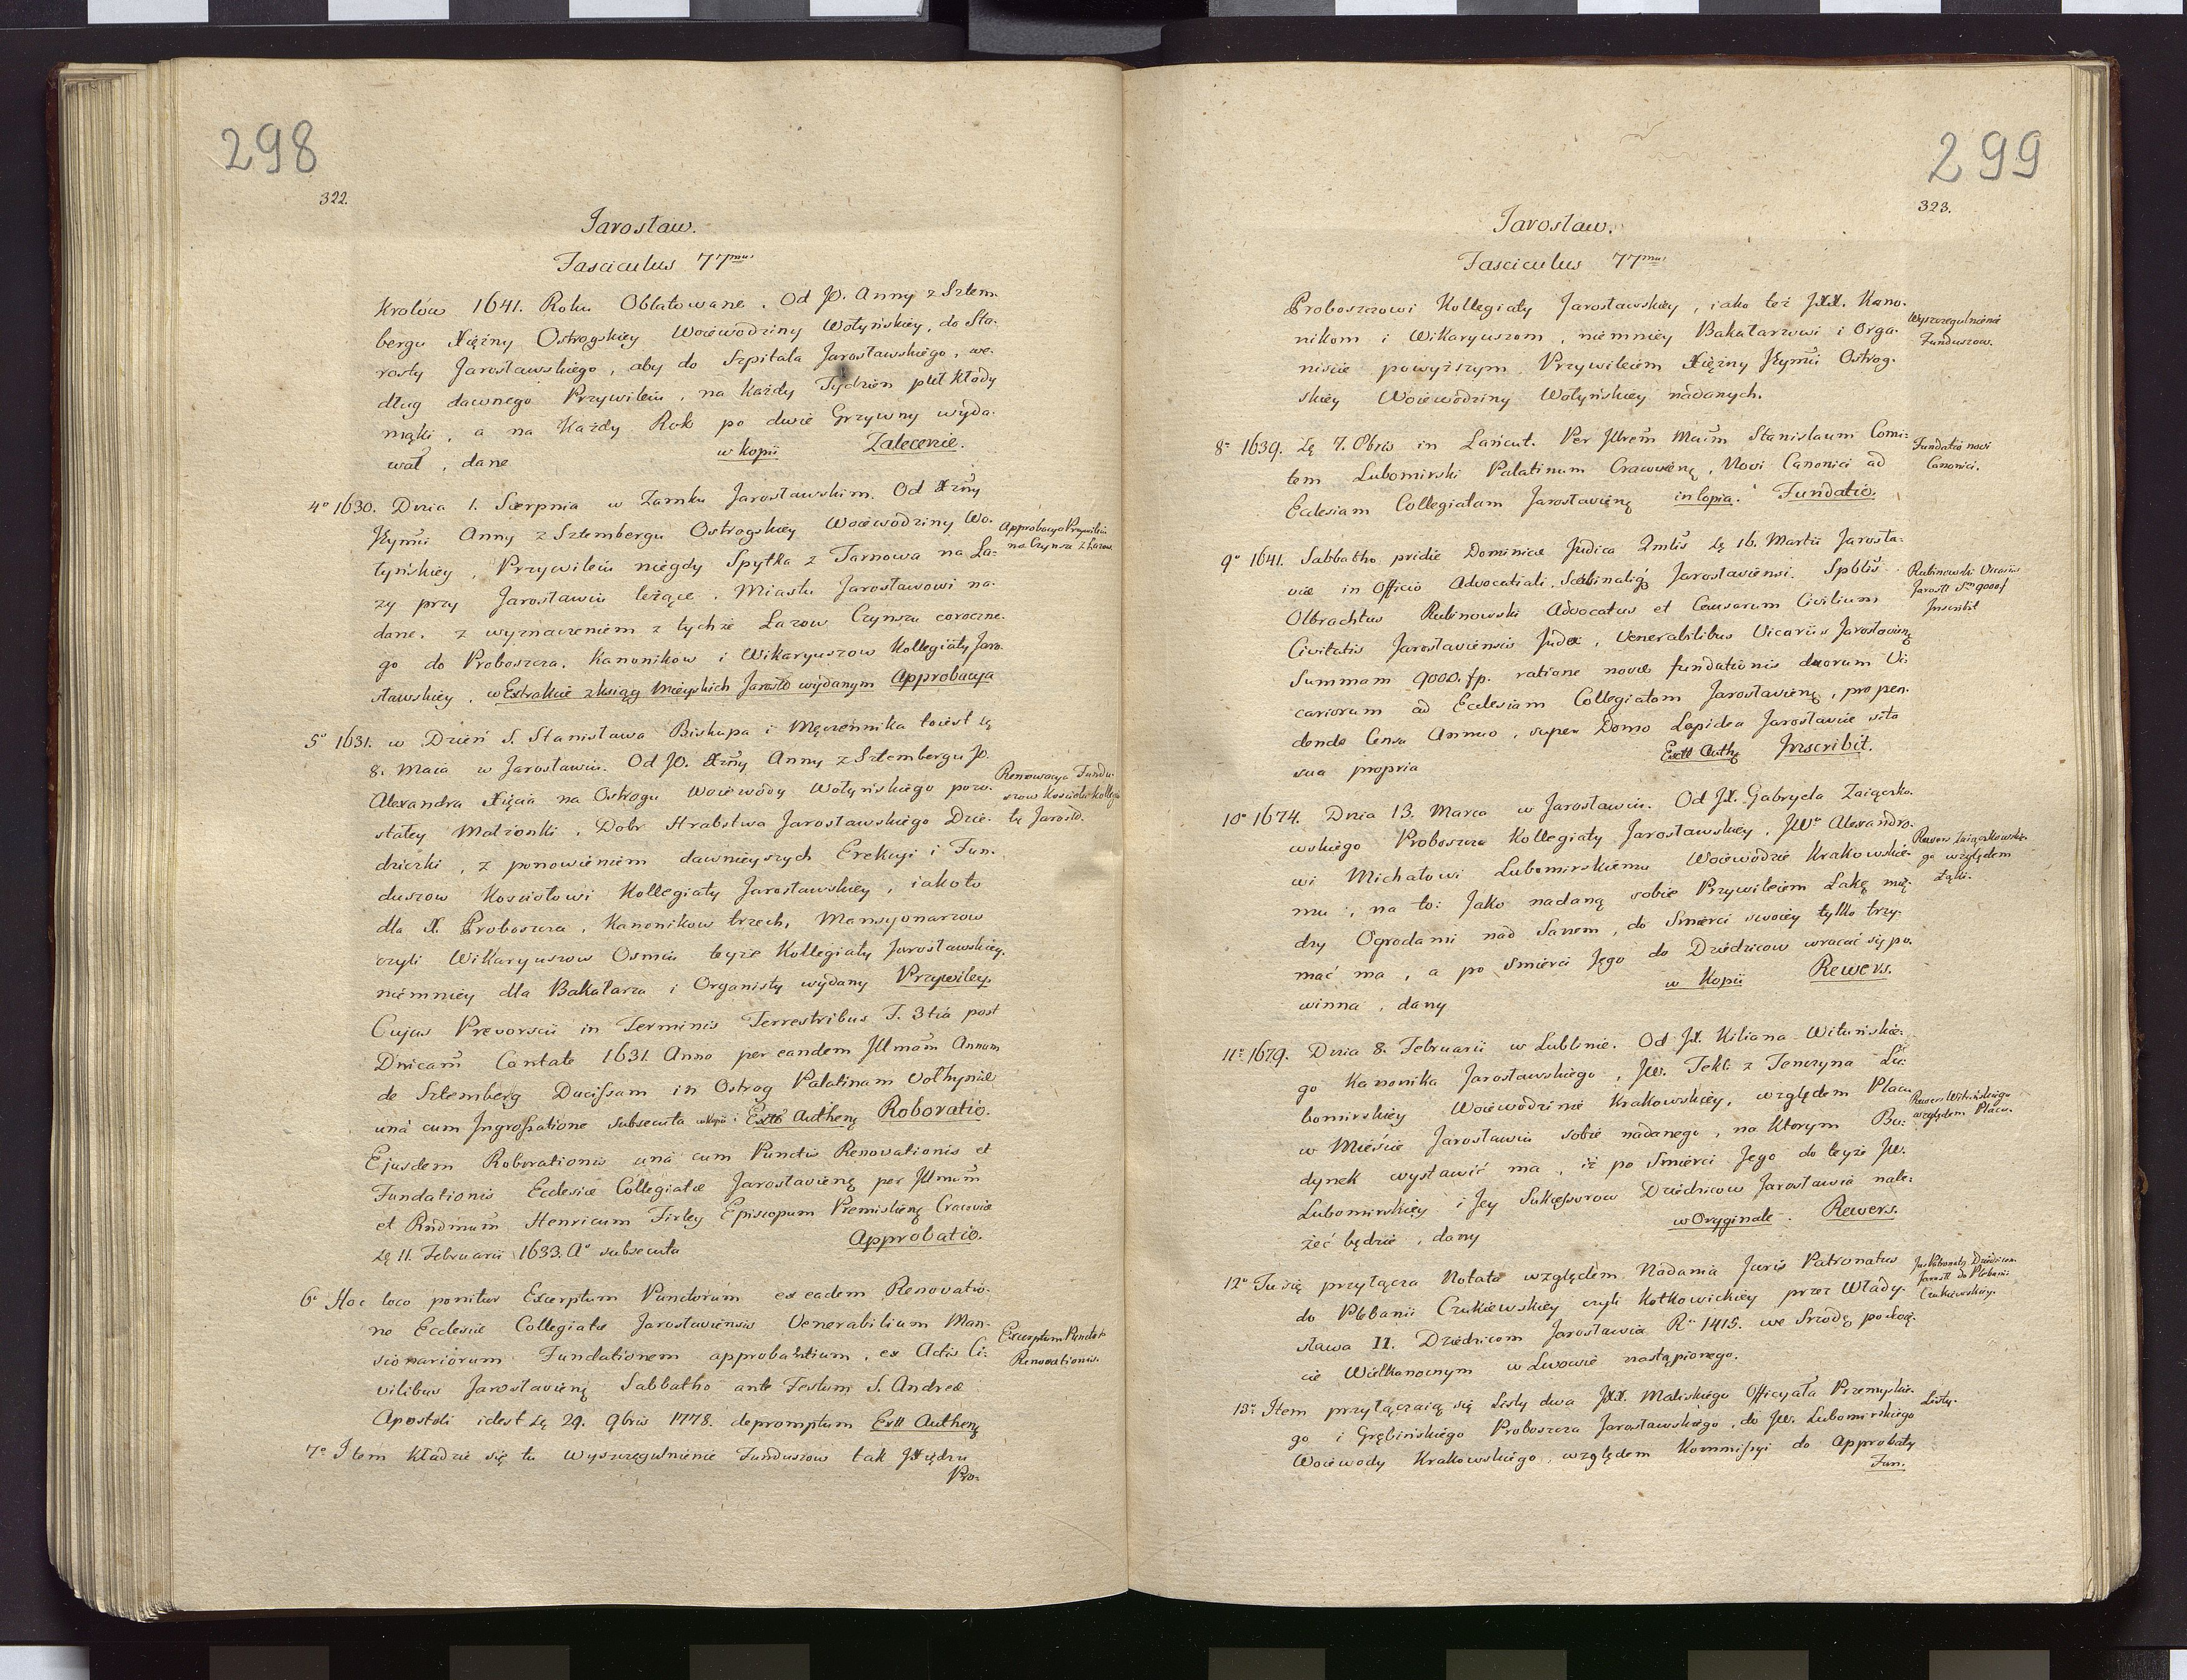 298
322.
Jarosław.
Fasciculus 77mus
Krolów 1641. Roku Oblatowane. Od JO. Anny z Sztem-
bergu Xiężny Ostrogskiey Woiewodziny Wołyńskiey, do Sta-
rosty Jarosławskiego, aby do Szpitala Jarosławskiego, we-
dług dawnego Przywileiu, na każdy Tydzien puł kłody
mąki, a na Każdy Rok po dwie Grzywny wyda-
wał, dane w kopii Zalecenie.
4o 1630. Dnia 1. Sierpnia w Zamku Jarosławskim. Od Xżny
Jeymći Anny z Sztembergu Ostrogskiey Woiewodziny Wo-
łyńskiey, Przywileiu niegdy Spytka z Tarnowa na Ła-
zy przy Jarosławiu leżące, Miastu Jarosławowi na-
dane, z wyznaczeniem z tychże Łazow Czynszu coroczne-
go do Proboszcza, Kanonikow i Wikaryuszow Kollegiaty Jaro-
sławskiey, w Extrakcie z ksiąg Mieyskich Jarosł wydanym Approbacya
Approbacya Przywileiu
na Czynsz z Łazow
5o 1631. w Dzień S. Stanisława Biskupa i Męczennika toiest
8. Maia w Jarosławiu. Od JO. Xżny Anny z Sztembergu JO.
Alexandra Xięcia na Ostrogu Woiewody Wołyńskiego pozo-
stałey Małżonki, Dobr Hrabstwa Jarosławskiego Dzie-
dziczki, z ponowieniem dawnieyszych Erekcyi i Fun-
duszow Kosciołowi Kollegiaty Jarosławskiey, iakoto
dla X. Proboszcza, Kanonikow trzech, Mansyonarzow
czyli Wikaryuszow Osmiu teyże Kollegiaty Jarosławskiey,
niemniey dla Bakałarza i Organisty wydany Przywiley.
Renowacya Fundu-
szow Kosciołu Kollegia
ty Jarosł.
Cujus Prevorscii in Terminis Terrestribus F. 3tiâ post
Dnicam̃ Cantate 1631 Anno per eandem Illmam̃ Annam
de Sztemberg Ducissam in Ostrog Palatinam Volhyniæ
unà cum Ingrossatione subsecuta Roboratio.
Ejusdem Roborationis unà cum Punctis Renovationis et
Fundationis Ecclesiæ Collegiatæ Jaroslavienę per Illmum̃
et Rndmum̃ Henricum Firley Episcopum Premislienę Cracoviæ
11. Februarii 1633. Ao subsecuta Approbatio.
6o Hoc loco ponitur Excerptum Punctorum ex eadem Renovatio-
ne Ecclesiæ Collegiatæ Jaroslaviensis Venerabilium Man-
sionariorum Fundationem approbantium, ex Actis Ci-
vilibus Jaroslavienę Sabbatho ante Festum S. Andreæ
Apostoli idest 29. 9bris 1778. depromptum Extt Authenę
Excerptum Punctor
Renovationis.
7o Item Kładzie się tu Wyszczegulnienie Funduszow tak JXiędzu
Pro-
299
323.
Jarosław.
Fasciculus 77mus
Proboszczowi Kollegiaty Jarosławskiey, iako też JXX. Kano-
nikom i Wikaryuszom, niemniey Bakałarzowi i Orga-
niscie powyższym Przywileiem Xiężny Jeymći Ostrog-
skiey Woiewodziny Wołyńskiey nádanych.
Wyszczegulnienie
Funduszow.
8o 1639. 7. 8bris in Łańcut. Per Illrem̃ Magm̃ Stanislaum Comi-
tem Lubomirski Palatinum Cracovienę, Novi Canonici ad
Ecclesiam Collegiatam Jaroslavienę in Copia. Fundatio.
Fundatio novi
Canonici.
9o 1641. Sabbatho pridie Dominicæ Judica 16. Martii Jarosla-
viæ in Officio Advocatiali Scabinaliq Jaroslaviensi. Spblis
Olbrachtus Rubinowski Advocatus et Causarum Civilium
Civitatis Jaroslaviensis Judex, Venerabilibus Vicariis Jaroslavienę
Summam 9000. fp. ratione novæ fundationis duorum Vi-
cariorum ad Ecclesiam Collegiatam Jaroslavienę, pro pen-
dendo Censu Annuo, super Domo Lapidea Jaroslaviæ sita
sua propria Extt Authę Inscribit.
Rubinowski Vicariis
Jarosl. Sm 9000 f
Inscribit
10o 1674. Dnia 13. Marca w Jarosławiu. Od JX. Gabryela Zaiączko-
wskiego Proboszcza Kollegiaty Jarosławskiey, JWo Alexandro-
wi Michałowi Lubomirskiemu Woiewodzie Krakowskie-
mu, na to: Jako nadaną sobie Przywileiem Łąkę mię-
dzy Ogrodami nad Sanem, do Smierci swoiey tylko trzy-
mać ma, a po Smierci Jego do Dziedzicow wracać się po-
winna, dany w Kopii Rewers.
Rewers Zaiączkowskie-
go względem
Łąki.
11o 1679. Dnia 8. Februarii w Lublinie. Od JX. Kiliana Wituńskie-
go Kanonika Jarosławskiego, JW. Tekli z Tenczyna Lu-
bomirskiey Woiewodzinie Krakowskiey, względem Placu
w Mieście Jarosławiu sobie nadanego, na Ktorym Bu-
dynek wystawić ma, iż po Smierci Jego do teyże JW.
Lubomirskiey i Jey Sukcessorow Dziedzicow Jarosławia nale-
żeć będzie, dany w Oryginale. Rewers.
Rewers Wituńskiego
względem Placu.
12o Tu się przyłącza Notata względem Nadania Juris Patronatus
do Plebanii Czukiewskiey czyli Kotkowickiey przez Włady-
sława II. Dziedzicom Jarosławia Ru 1415. we Srodę po Nie-
cie Wielkanocnym w Lwowie nastąpionego.
Jus Patronatus Dziedzicom
Jarosł. do Plebanii
Czukiewskiey.
13o Item przyłączaią się Listy dwa JXX. Maliskiego Officyała Przemyskie-
go i Grębińskiego Proboszcza Jarosławskiego, do JW. Lubomirskiego
Woiewody Krakowskiego, względem Kommissyi do Approbaty
Fun.
Listy.